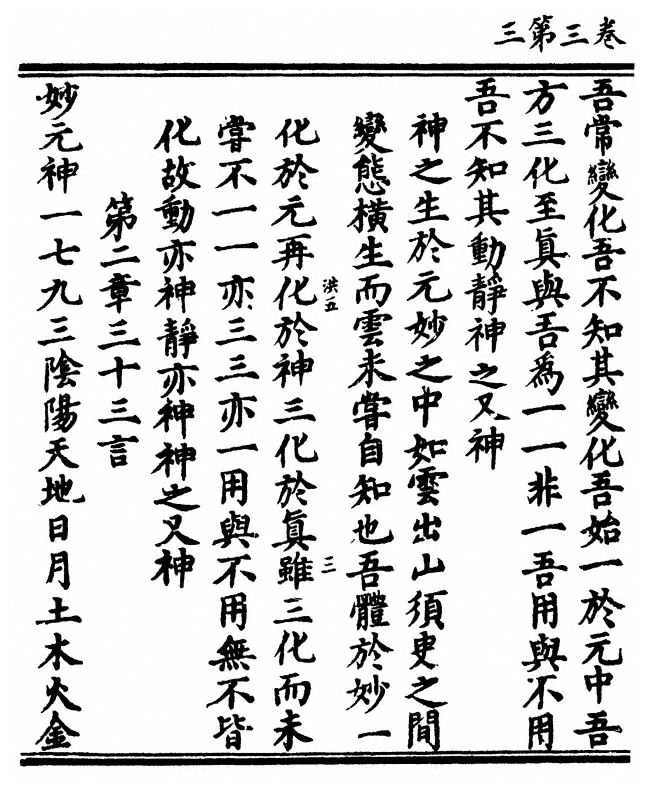 卷三第三
吾常變化吾不知其變化吾始一於元中吾
方三化至眞與吾爲一一非一吾用與不用
吾不知其動靜神之又神
神之生於元妙之中如雲出山須臾之間
變態橫生而雲未甞自知也吾體於妙一
洪五
三
化於元再化於神三化於眞雖三化而未
甞不一一亦三三亦一用與不用無不皆
化故動亦神靜亦神神之又神
第二章三十三言
妙元神一七九三陰陽天地日月土木火金